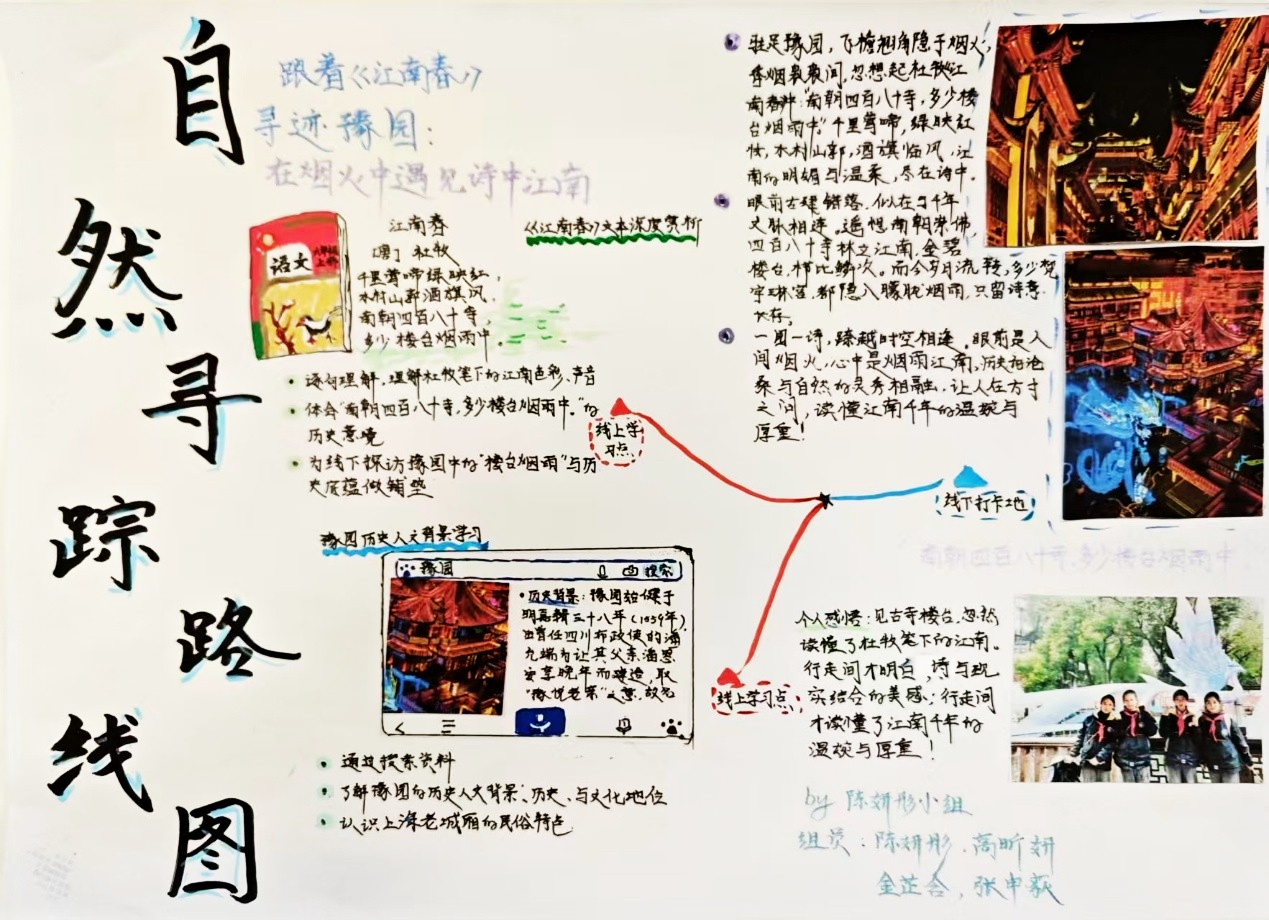 自然寻踪路线图
跟着《江南春》
寻迹豫园：
在烟火中遇见诗中江南
语文
六年级
上册
江南春
[唐] 杜牧
千里莺啼绿映红，
水村山郭酒旗风。
南朝四百八十寺，
多少楼台烟雨中。
《江南春》文本深度赏析
逐句理解，理解杜牧笔下的江南色彩、声音
体会“南朝四百八十寺，多少楼台烟雨中。”的
历史意境
为线下探访豫园中的“楼台烟雨”与历
史底蕴做铺垫
线上学
习点
豫园历史人文背景学习
豫园
搜索
历史背景：豫园始建于
明嘉靖三十八年（1559年）
由曾任四川布政使的潘
允端为让其父亲潘恩
安享晚年而建造，取
“豫悦老亲”之意，故名
通过搜索资料
了解豫园的历史人文背景、历史、与文化地位
认识上海老城厢的民俗特点
线上学习点
驻足豫园，飞檐翘角隐于烟火，
香烟袅袅间，忽想起杜牧《江
南春》中：“南朝四百八十寺，多少楼
台烟雨中。”千里莺啼，绿映红
妆，水村山郭，酒旗临风，江
南的明媚与温柔，尽在诗中。
眼前古建错落，似在与千年
文脉相连。遥想南朝崇佛，
四百八十寺林立江南，金碧
楼台，栉比鳞次。而今岁月流转，多少梵
宇琳宫，都隐入朦胧烟雨，只留诗意
长存。
一园一诗，跨越时空相逢。眼前是人
间烟火，心中是烟雨江南，历史的沧
桑与自然的灵秀相融，让人在方寸
之间，读懂江南千年的温婉与
厚重！
线下打卡地
南朝四百八十寺，多少楼台烟雨中
个人感悟：见古寺楼台，忽然
读懂了杜牧笔下的江南。
行走间才明白，诗与现
实结合的美感；行走间
才读懂了江南千年的
温婉与厚重！
by 陈妍彤小组
组员：陈妍彤、高昕妍
金芷含，张申